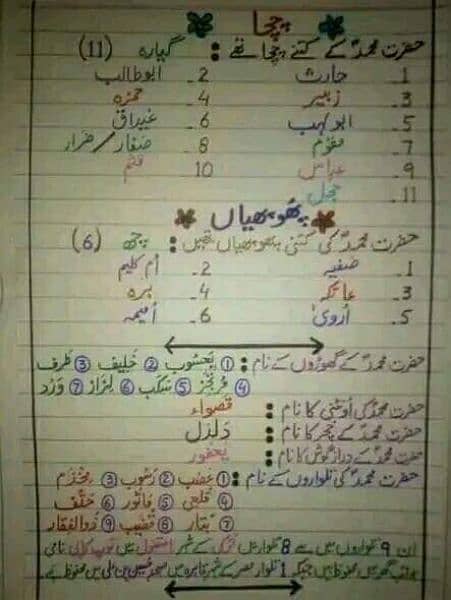 چچا
حضرت محمدؐ کے کتنے چچا تھے : گیارہ (11)
1. حارث 2. ابو طالب
3. زبیر 4. حمزہ
5. ابولہب 6. غیداق
7. مقوم 8. صفار/ضرار
9. عباس 10. قثم
11. حجل
پھوپھیاں
حضرت محمدؐ کی کتنی پھوپھیاں تھیں : چھ (6)
1. صفیہ 2. ام کلیم
3. عاتکہ 4. برہ
5. اُرویٰ 6. اُمیمہ
حضرت محمدؐ کے گھوڑوں کے نام : ① یعسوب ② خلیف ③ طرف
④ مرتجز ⑤ سکب ⑥ لزاز ⑦ وَرد
حضرت محمدؐ کی اونٹنی کا نام : قصواء
حضرت محمدؐ کے خچر کا نام : دلدل
حضرت محمدؐ کے دراز گوش کا نام : یعفور
حضرت محمدؐ کی تلواروں کے نام : ① عضب ② رسوب ③ مخذم
④ قلعی ⑤ ماثور ⑥ حتف
⑦ بتار ⑧ قضیب ⑨ ذوالفقار
ان 9 تلواروں میں سے 8 تلواریں ترکی کے شہر استنبول میں توپ کاپی نامی
عجائب گھر میں محفوظ ہیں جبکہ 1 تلوار مصر کے شہر قاہرہ میں مسجد حسین بن علی میں محفوظ ہے۔